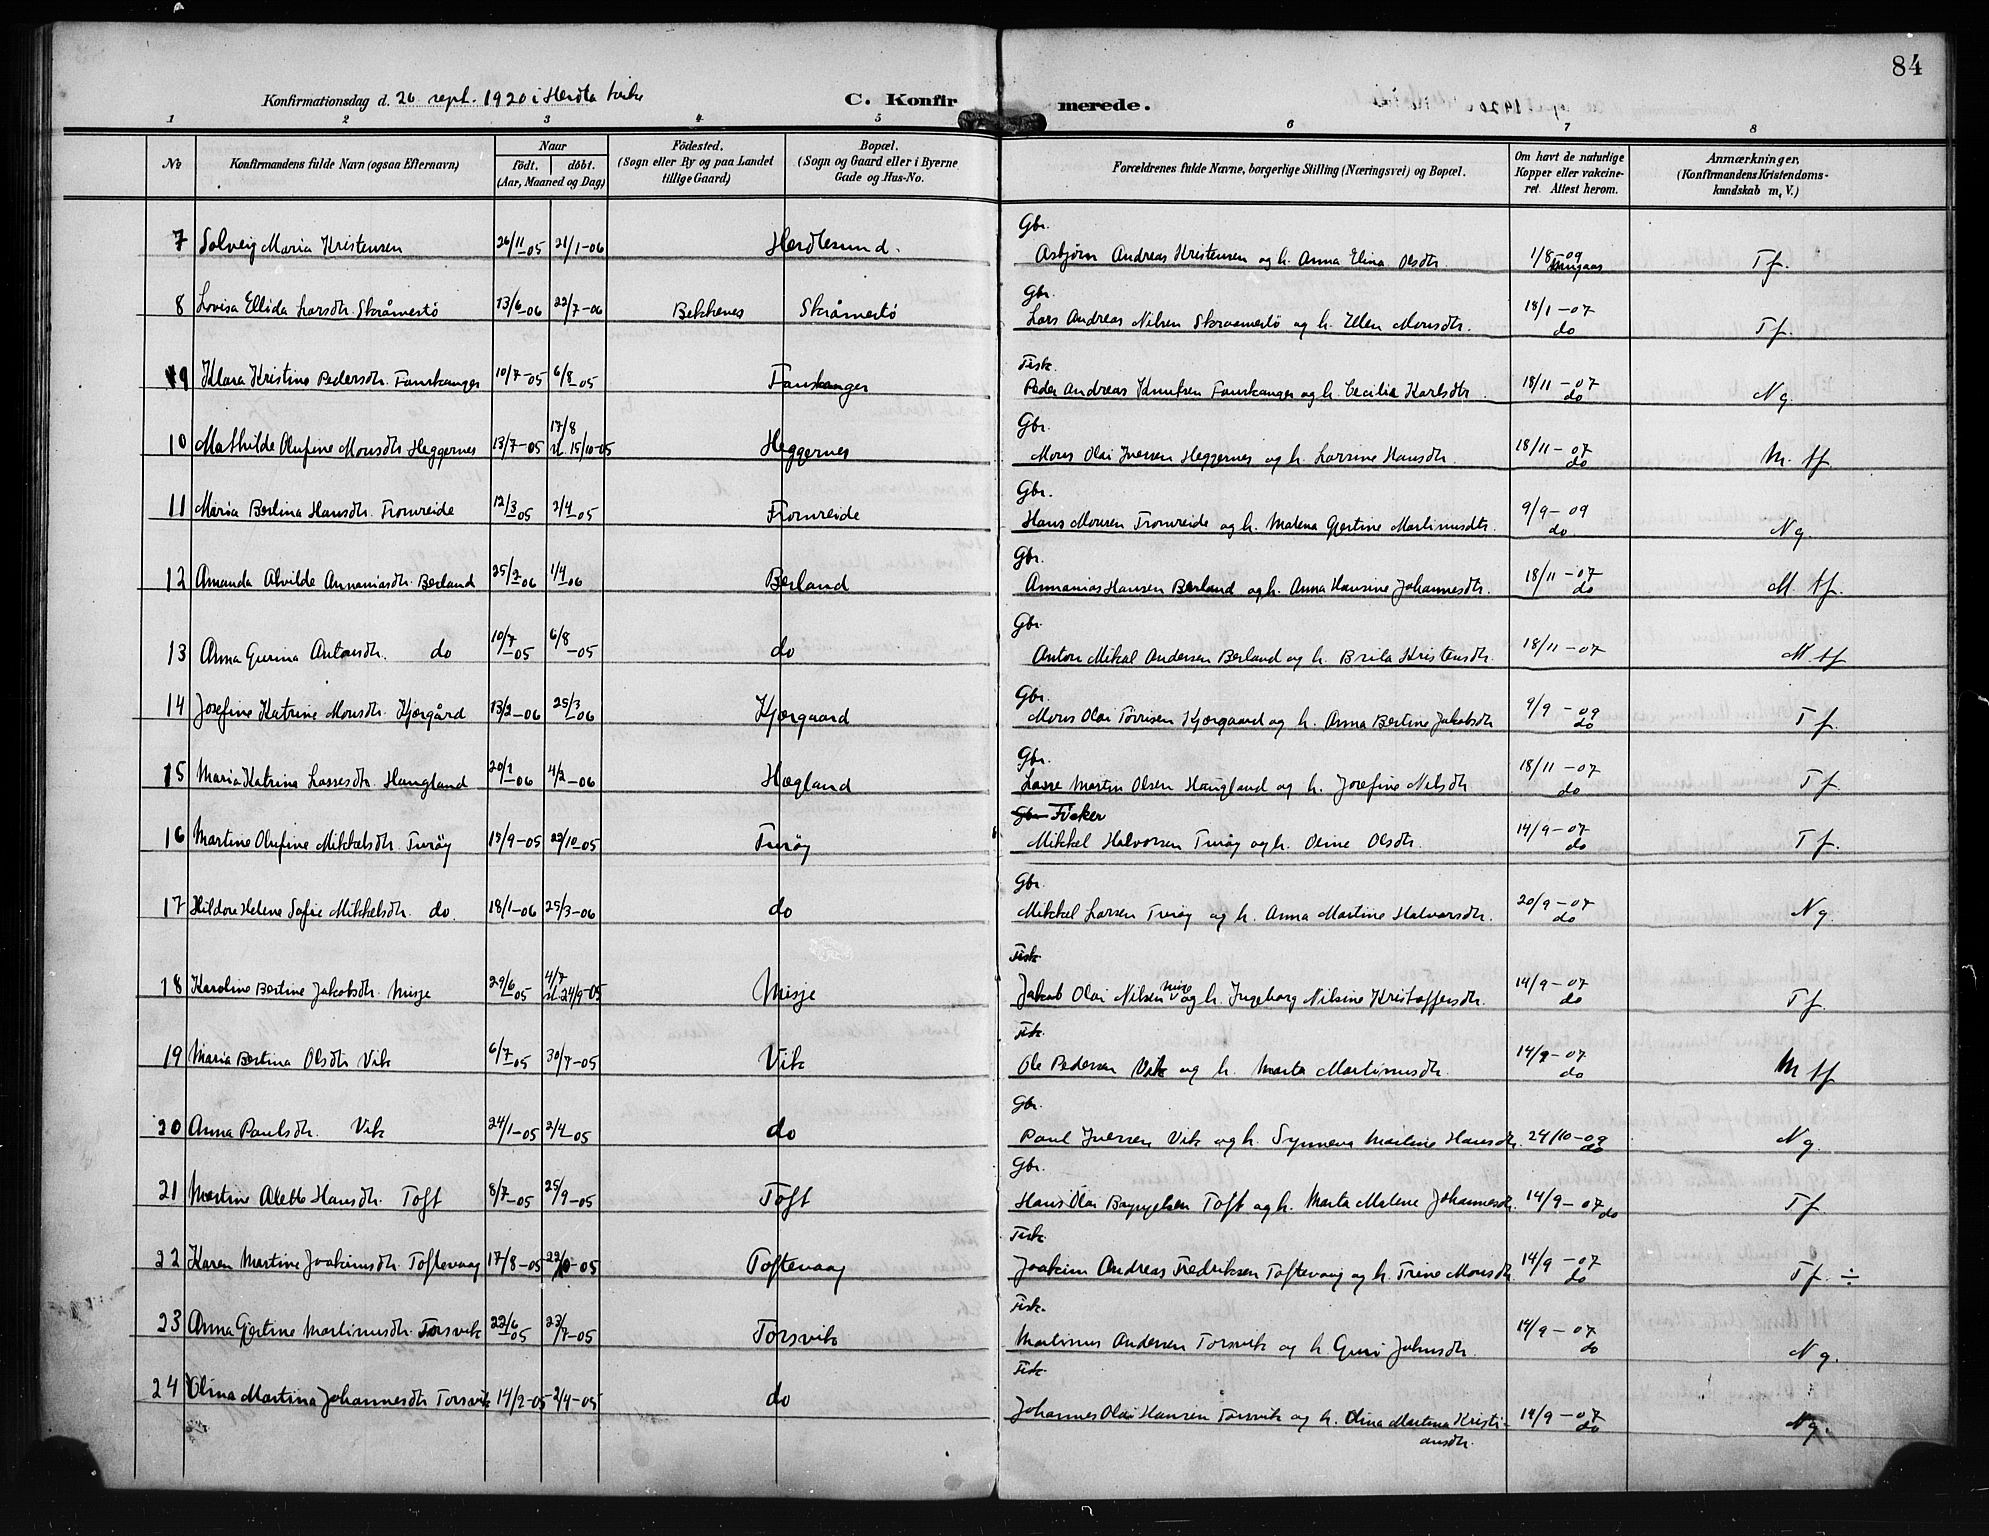 84
Konfirmationsdag d. 26 sept. 1920 i Herdla kirke
C. Konfirmerede.
1 2 3 4 5 6 7 8
No
Konfirmandens fulde Navn (ogsaa Efternavn)
Naar
födt. döbt.
(Aar, Maaned og Dag)
Födested.
(Sogn eller By og paa Landet
tillige Gaard)
Bopæl.
(Sogn og Gaard eller i Byerne
Gade og Hus-No.
Forældrenes fulde Navne, borgerlige Stilling (Næringsvei) og Bopæl.
Om havt de naturlige
Kopper eller vakcine-
ret. Attest herom.
Anmærkninger,
(Konfirmandens Kristendoms-
kundskab m, V.)
Gbr.
7 Solveig Maria Kristensen 26/11-05 21/1-06 Herdlesund. Asbjørn Andreas Kristensen og h. Anna Elina Olsdtr. 1/8-09 Tf.
Gbr.
8 Lovisa Ellida Larsdtr. Skråmestö 13/6-06 22/7-06 Bekkenes Skråmestö Lars Andreas Nilsen Skraamestö og h. Ellen Monsdtr. 18/1-07 do Tf.
Fisk.
9 Klara Kristine Pedersdtr. Fauskanger 10/7-05 6/8-05 Fauskanger Peder Andreas Knutsen Fauskanger og h. Cecilia Karlsdtr. 18/11-07 do Ng.
Gbr.
10 Mathilde Olufine Monsdtr Heggernes 13/7-05 17/8 st. 15/10-05 Heggernes Mons Olai Iversen Heggernes og h. Larsine Hansdtr. 18/11-07 do M. tf.
Gbr.
11 Maria Berlina Hansdtr. Fromreide 12/3-05 2/4-05 Fromreide Hans Monsen Fromreide og h. Malena Gjertine Martinusdtr. 9/9-09 do Ng.
Gbr.
12 Amanda Alvilde Annaniasdtr. Berland 25/2-06 1/4-06 Berland Annanias Hansen Berland og h. Anna Hansine Johannesdtr. 18/11-07 do M. tf.
Gbr.
13 Anna Gurina Antonsdtr. do 10/7-05 6/8-05 do Anton Mikal Andersen Berland og h. Brita Kristensdtr. 18/11-07 M. tf
Gbr.
14 Josefine Katrine Monsdtr. Kjærgård 13/2-06 25/3-06 Kjærgaard Mons Olai Torrisen Kjærgaard og h. Anna Bertine Jakobsdtr 9/9-09 do Tf.
Gbr.
15 Maria Katrine Lassesdtr. Haugland 20/1-06 4/2-06 Hægland Lasse Martin Olsen Haugland og h. Josefine Nilsdtr 18/11-07 do Tf.
Gbr Fisker
16 Martine Olufine Mikkelsdtr. Turöy 15/9-05 22/10-05 Turöy Mikkel Halvorsen Turöy og h. Oline Olsdtr. 14/9-07 do Tf.
Gbr.
17 Hildore Helene Sofie Mikkelsdtr. do. 18/1-06 25/3-06 do Mikkel Larsen Turöy og h. Anna Martine Halvorsdtr. 20/9-07 do Ng.
Fisk.
18 Karoline Bertine Jakobsdtr. Misje 29/6-05 4/7 st. 24/9-05 Misje Jakob Olai Nilsen Misje og h. Ingeborg Nilsine Kristoffersdtr. 14/9-07 do Tf.
Fisk.
19 Maria Bertina Olsdtr Vik 6/7-05 30/7-05 Vik Ole Pedersen Vik og h. Marta Martinusdtr. 14/9-07 do M tf
Gbr.
20 Anna Paulsdtr. Vik 24/1-05 2/4-05 do Paul Iversen Vik og h. Synneva Martine Hansdtr. 24/10-09 do Ng.
Gbr.
21 Martine Aletto Hansdtr. Toft 8/7-05 25/9-05 Toft Hans Olai Toft og h. Marta Malene Johannesdtr. 14/9-07 do Tf
Fisk.
22 Karen Martine Joakimsdtr. Toftevaag 17/8-05 22/10-05 Toftevaag Joakim Andreas Fredriksen Toftevaag og h. Trine Monsdtr 14/9-07 do Tf. ÷
Fisk.
23 Anna Gjertine Martinusdtr. Torsvik 22/6-05 23/7-05 Torsvik Martinus Andersen Torsvik og h. Guri Johnsdtr. 14/9-07 do Ng.
Fisk.
24 Olina Martina Johannesdtr Torsvik 14/2-05 2/4-05 do Johannes Olai Hansen Torsvik og h. Olina Martina Kristi- 14/9-07 do Ng.
ansdtr.